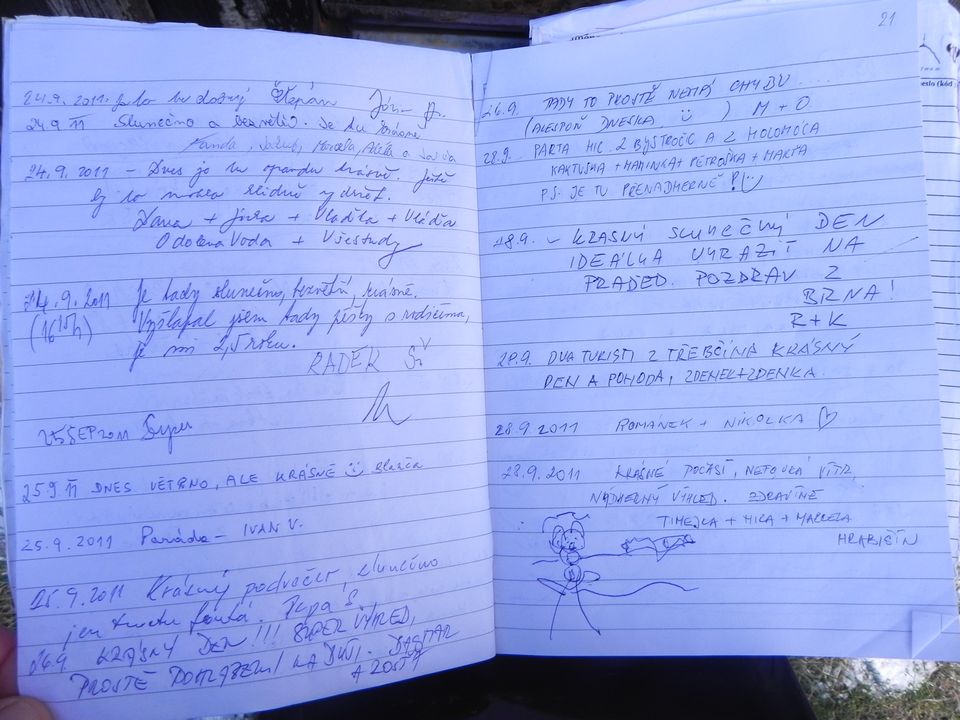 24.9.2011. Štěpán
24.9.11 Slunečno a bezvětří. Je tu krásně
Jakub, Marcela, Adéla a
24.9.2011 – Dnes je tu opravdu krásně. Ještě
by to mohlo
Dana + Jirka + Vlaďka + Vláďa
Odolena Voda + Všestudy
24.9.2011 Je tady slunečno, bezvětří, krásně.
(16 15 h) Vyšlapal jsem tady pěšky s rodičema,
je mi 2,5 roku.
RADEK Š.
25 SEP 2011 Super
25.9.11 DNES VĚTRNO, ALE KRÁSNĚ
25.9.2011 Paráda – IVAN V.
25.9.2011 Krásný podvečer, slunečno
jen trochu fouká. Pepa Š.
26.9 KRÁSNÝ DEN!!! SUPER VÝHLED,
PROSTĚ POHLAZENÍ NA DUŠI. DAGMAR
21
26.9. TADY TO PROSTĚ NEMÁ CHYBU....
(ALESPOŇ DNESKA ) M + O
28.9. PARTA HIC Z BYSTROČIC A Z HOLOMÓCA
KAKTUSKA + MAMINKA + PETROUŠKA +
P.S. JE TU PŘENÁDHERNĚ!
28.9. – KRÁSNÝ SLUNEČNÝ DEN
IDEÁLKA VYRAZIT NA
PRADĚD. POZDRAV Z
BRNA!
R + K
28.9. DVA TURISTI Z TŘEBČÍNA KRÁSNÝ
DEN A POHODA, ZDENEK + ZDENKA
28.9 2011 ROMÁNEK + NIKOLKA
28.9.2011 KRÁSNÉ POČASÍ, NEFOUKÁ VÍTR,
NÁDHERNÝ VÝHLED. ZDRAVÍME
+ MÍRA + MARCELA